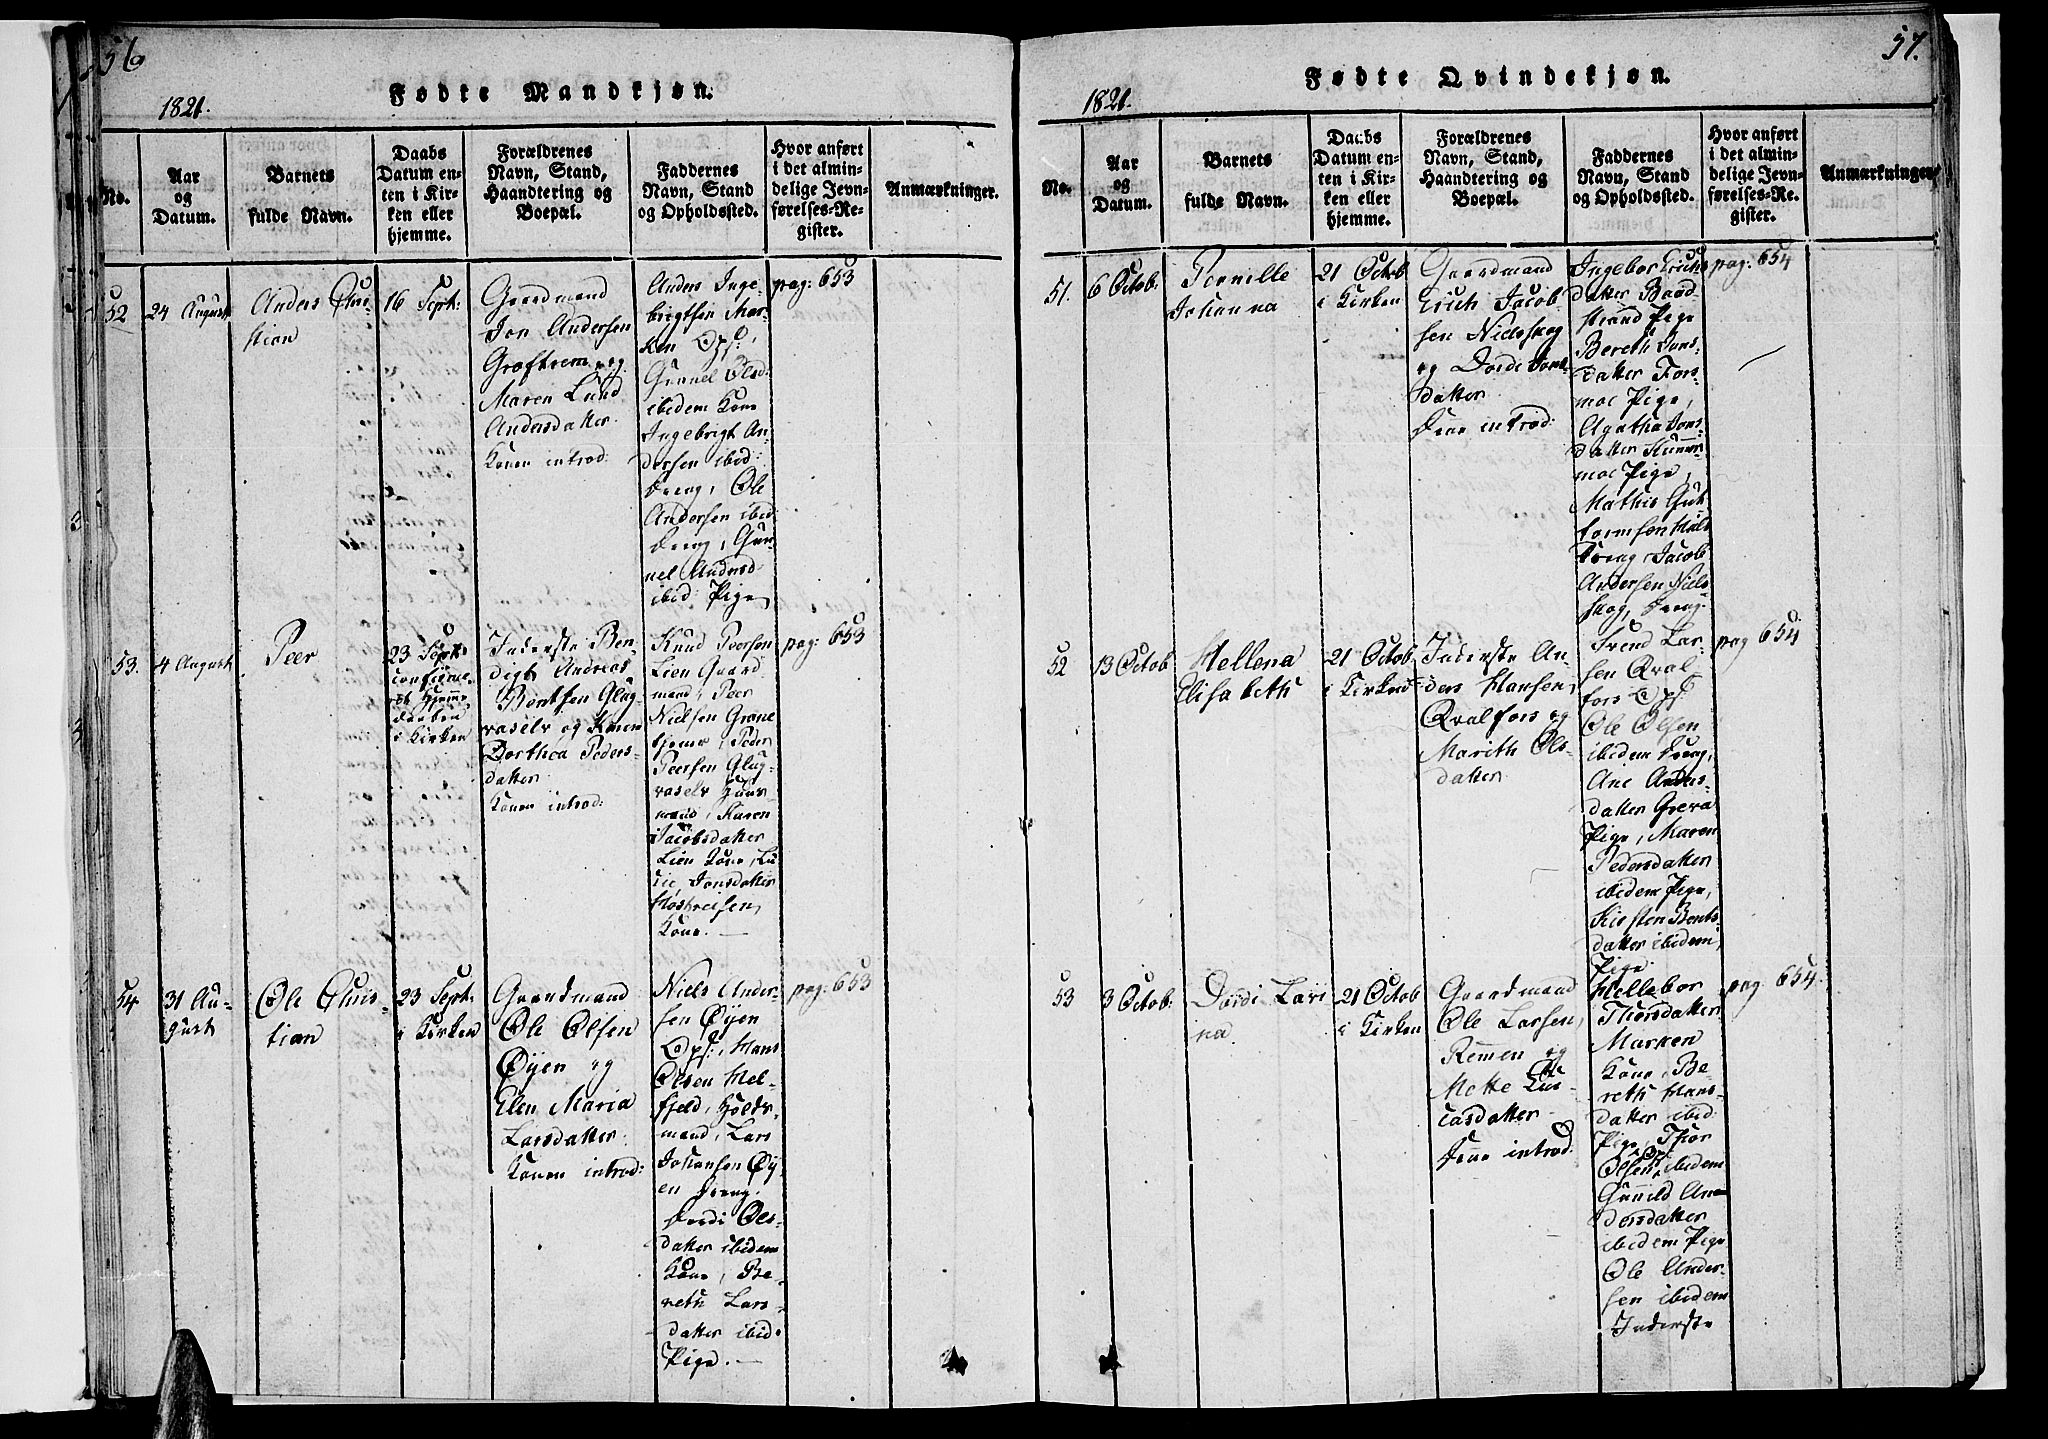 56
Fødte Mandkjøn.
1821.
No.
Aar
og
Datum.
Barnets
fulde Navn.
Daabs
Datum en-
ten i Kir-
ken eller
hjemme.
Forældrenes
Navn, Stand,
Haandtering og
Boepæl.
Faddernes
Navn, Stand
og Opholdssted.
Hvor anført
i det almin-
delige Jevn-
førelses-Re-
gister.
Anmærkninger.
52
24 August
Anders Chri-
stian
16 Sept:
Gaardmand
Jon Andersen
Groftrem og
Maren Lund
Andersdatter
Konen introd:
Anders Inge-
brigtsen Mar-
ken Ops:,
Gunnel Olsd:
ibidem Kone
Ingebrigt An-
dersen ibid:
Dreng, Ole
Andersen ibid
Dreng, Gun-
nel Andersd
ibid: Pige
pag: 653
53.
4 August
Peer
23 Sept:
confirme-
ret Hjemme
daaben
i Kirken
Inderste Ben-
digt Andreas
Bentsen Glug-
vaselv og Karen
Dorthea Peders-
datter
Konen introd:
Knud Iversen
Lien Gaard
mand, Peer
Nielsen Grane
Peder
Peersen Glug-
vaselv Huus-
mand, Karen
Jacobsdatter
Lien Kone, Lu-
cie Jonsdatter
Kone. —
pag: 653
54
31 Au-
gust
Ole Chris-
tian
23 Sept:
i Kirken
Gaardmand
Ole Olsen
Øyen og
Elen Maria
Larsdatter
Konen introd:
Niels Ander-
sen Øyen
Ops:, Hans
Olsen Mel-
fjeld, Holds-
mand, Lars
Johansen Øy-
en Dreng.
Dordi Ols-
datter ibidem
Kone, Be-
reth Lars-
datter ibid:
Pige. —
pag: 653
57.
Fødte Qvindekjøn.
1821.
No.
Aar
og
Datum.
Barnets
fulde Navn.
Daabs
Datum en-
ten i Kir-
ken eller
hjemme.
Forældrenes
Navn, Stand,
Haandtering og
Boepæl.
Faddernes
Navn, Stand
og Opholdssted.
Hvor anført
i det almin-
delige Jevn-
førelses-Re-
gister.
Anmærkninger
51.
6 Octob:
Pernille
Johanna
21 Octob
i Kirken
Gaardmand
Erich Jacob-
sen Nielsskog
og Dordi Jons-
datter
introd:
Ingebor Erichs
datter Baad-
strand Pige
Bereth Jons-
datter Fors-
moe Pige,
Agatha Jons-
datter
moe Pige,
Mathis Gut-
tormsen
Dreng, Jacob
Andersen Niels-
skog, Dreng.
pag: 654
52
13 Octob
Hellena
Elisabeth
21 Octob
i Kirken
Inderste An-
ders Hansen,
Qvalfors og
Marith Ols-
datter
Svend Lar-
sen Qval-
fors Ops
Ole Olsen
ibidem Dreng,
Ane Anders-
datter Greva
Pige, Maren
Pedersdatter
ibidem Pige,
Kirsten Bents
datter ibidem,
Pige
pag 654
53
3 Octob:
Dordi Lari
na.
21 Octob
i Kirken
Gaardmand
Ole Larsen,
Remen og
Mette Lu-
casdatter
introd:
Hellebor
Thorsdatter
Marken
Kone, Be-
reth Hans-
datter ibid
Pige, Thor
Olsen Ops ibidem
Gunnild An-
dersdatter
ibidem Pige
Ole Ander-
sen ibidem
Inderste
pag. 654.